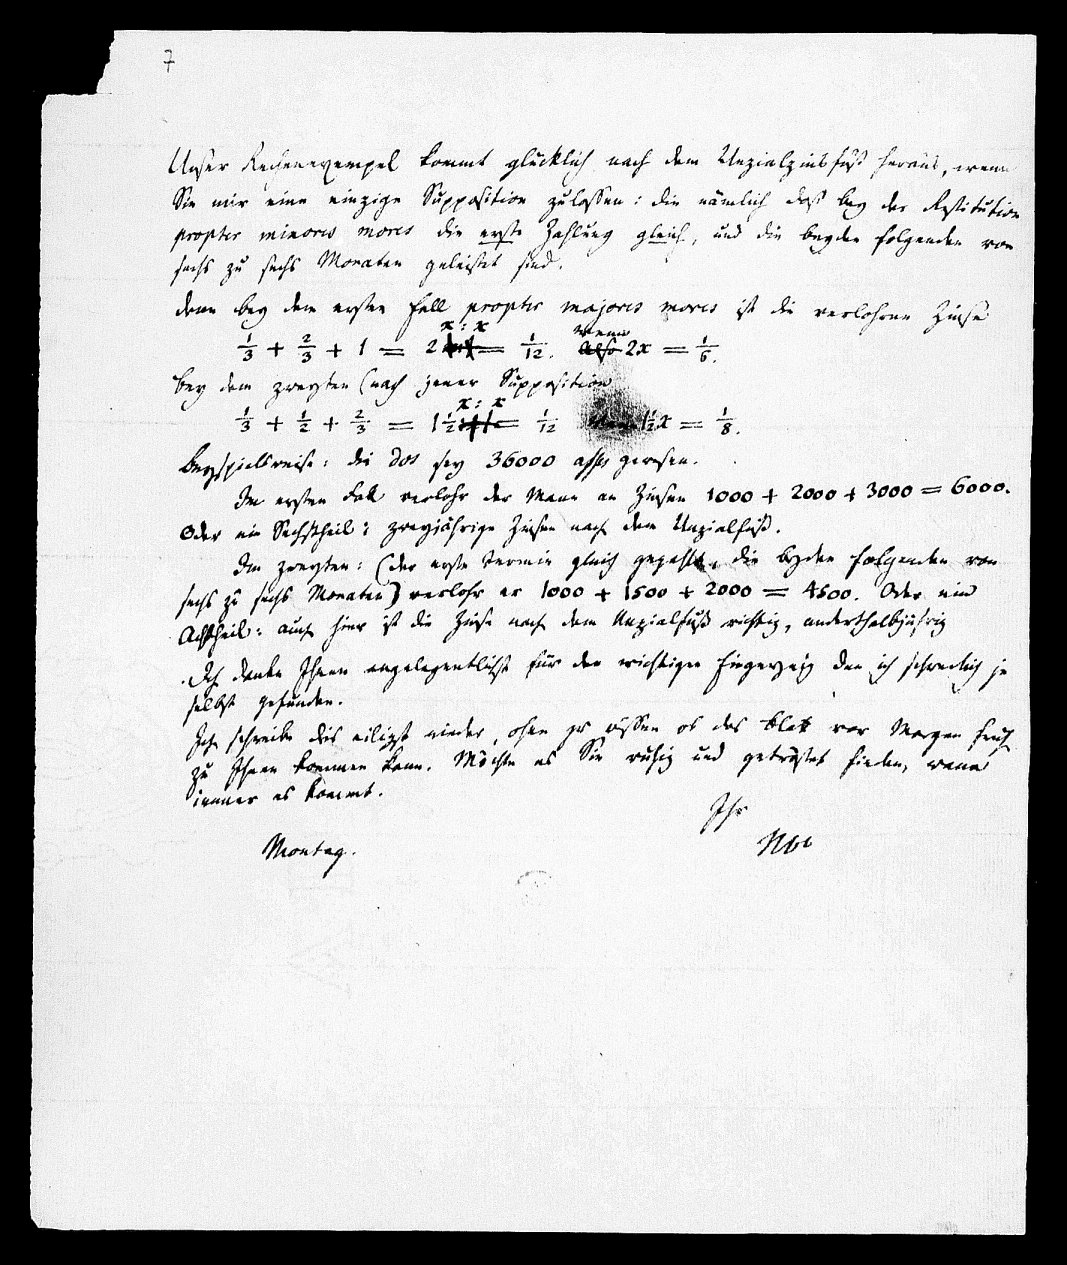 7
Unser Rechenexempel kommt glücklich nach dem Unzialzinsfuß heraus, wenn
Sie mir eine einzige Supposition zulassen: die nämlich daß bey der Restitution
propter minores mores die erste Zahlung gleich, und die beyden folgenden von
sechs zu sechs Monaten geleistet sind.
denn bey dem ersten Fall propter majores mores ist die verlohrne Zinse
x : x wenn
1/3 + 2/3 + 1 = 2 = 1/12. also 2x = 1/6.
bey dem zweyten (nach jener Supposition
x : x
1/3 + 1/2 + 2/3 = 1 1/2 = 1/12 wenn 1 1/2 x = 1/8.
beyspielsweise: die dos sey 36000 asses gewesen.
Im ersten Fall verlohr der Mann an Zinsen 1000 + 2000 + 3000 = 6000.
Oder ein Sechstheil: zweyjährige Zinsen nach dem Unzialfuß.
Im zweyten: (der erste Termin gleich gezahlt, die beyden folgenden von
sechs zu sechs Monaten) verlohr er 1000 + 1500 + 2000 = 4500. Oder ein
Achtheil: auch hier ist die Zinse nach dem Unzialfuß richtig, anderthalbjährig
Ich danke Ihnen angelegentlichst für den wichtigen Fingerzeig den ich schwerlich je
selbst gefunden.
Ich schreibe dies eiligst nieder, ohne zu wissen ob das Blatt vor Morgen früh
zu Ihnen kommen kann. Möchte es Sie ruhig und getröstet finden, wann
immer es kommt.
Ihr
Montag. Nbr